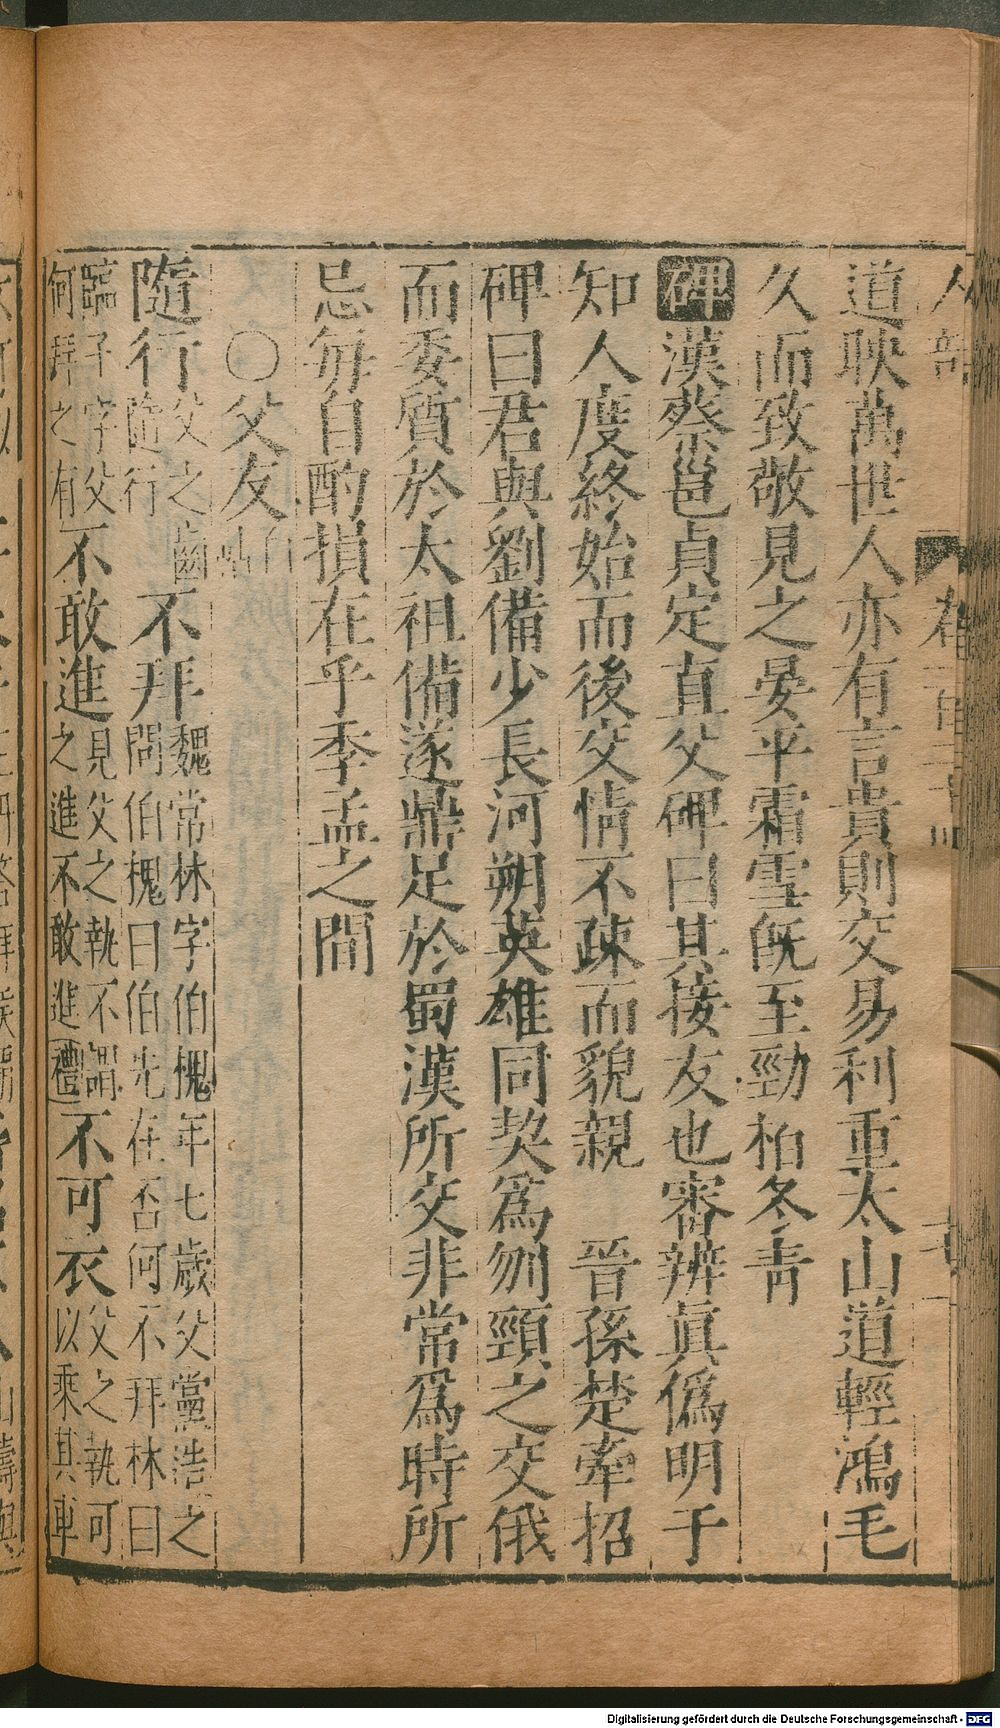 人部
道映萬世人亦有言貴則交易利重太山道輕鴻毛
久而致敬見之晏平霜雪旣至勁柏冬靑
碑漢蔡邕貞定直父碑曰其接友也審辨眞僞明于
知人度終始而後交情不疎而貌親　晉孫楚牽招
碑曰君與劉備少長河朔英雄同契爲刎頸之交俄
而委質於太祖備遂鼎足於蜀漢所交非常爲時所
忌每自酌損在乎季孟之間
〇父友
隨行父之齒隨行不拜魏常林字伯槐年七歲父黨浩之問伯槐曰伯先在否何不拜林曰
臨子字父何拜之有不敢進見父之執不謂之進不敢進禮不可衣父之執可以乘其車
Digitalisierung gefördert durch die Deutsche Forschungsgemeinschaft - DFG